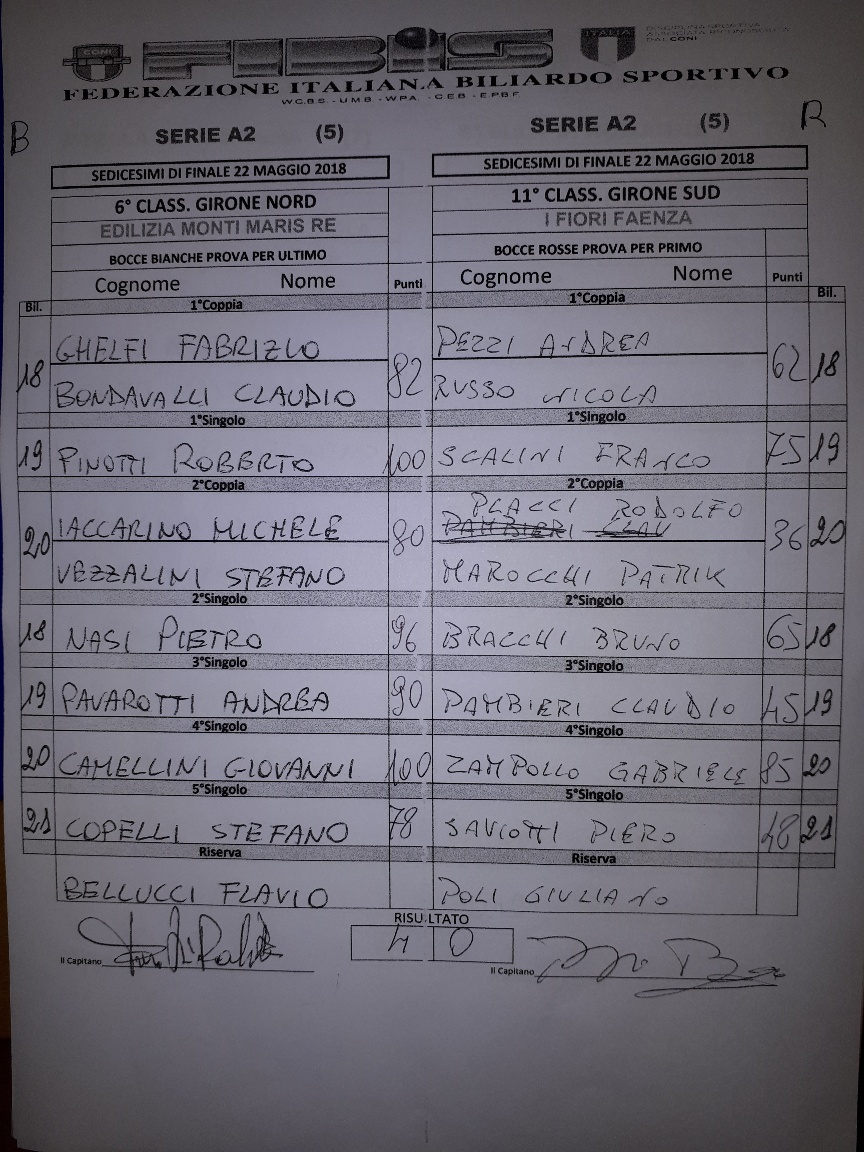 CONI FIBIS ITALIA
FEDERAZIONE ITALIANA BILIARDO SPORTIVO
W.C.B.S. - U.M.B. - W.P.A. - C.E.B. - E.P.B.F.
B SERIE A2 (5) SERIE A2 (5) R
SEDICESIMI DI FINALE 22 MAGGIO 2018 SEDICESIMI DI FINALE 22 MAGGIO 2018
6° CLASS. GIRONE NORD 11° CLASS. GIRONE SUD
EDILIZIA MONTI MARIS RE I FIORI FAENZA
BOCCE BIANCHE PROVA PER ULTIMO BOCCE ROSSE PROVA PER PRIMO
Cognome Nome Punti Cognome Nome Punti
Bil. 1°Coppia 1°Coppia Bil.
GHELFI FABRIZIO PEZZI ANDREA
18 82 62 18
BONDAVALLI CLAUDIO RUSSO NICOLA
1°Singolo 1°Singolo
19 PINOTTI ROBERTO 100 SCALINI FRANCO 75 19
2°Coppia 2°Coppia
PLACCI RODOLFO
IACCARINO MICHELE PAMBIERI CLAU
20 80 36 20
VEZZALINI STEFANO MAROCCHI PATRIK
2°Singolo 2°Singolo
18 NASI PIETRO 96 BRACCHI BRUNO 65 18
3°Singolo 3°Singolo
19 PAVAROTTI ANDREA 90 PAMBIERI CLAUDIO 45 19
4°Singolo 4°Singolo
20 CAMELLINI GIOVANNI 100 ZAMPOLLO GABRIELE 85 20
5°Singolo 5°Singolo
21 COPELLI STEFANO 78 SAVIOTTI PIERO 48 21
Riserva Riserva
BELLUCCI FLAVIO POLI GIULIANO
RISULTATO
4 0
Il Capitano Il Capitano